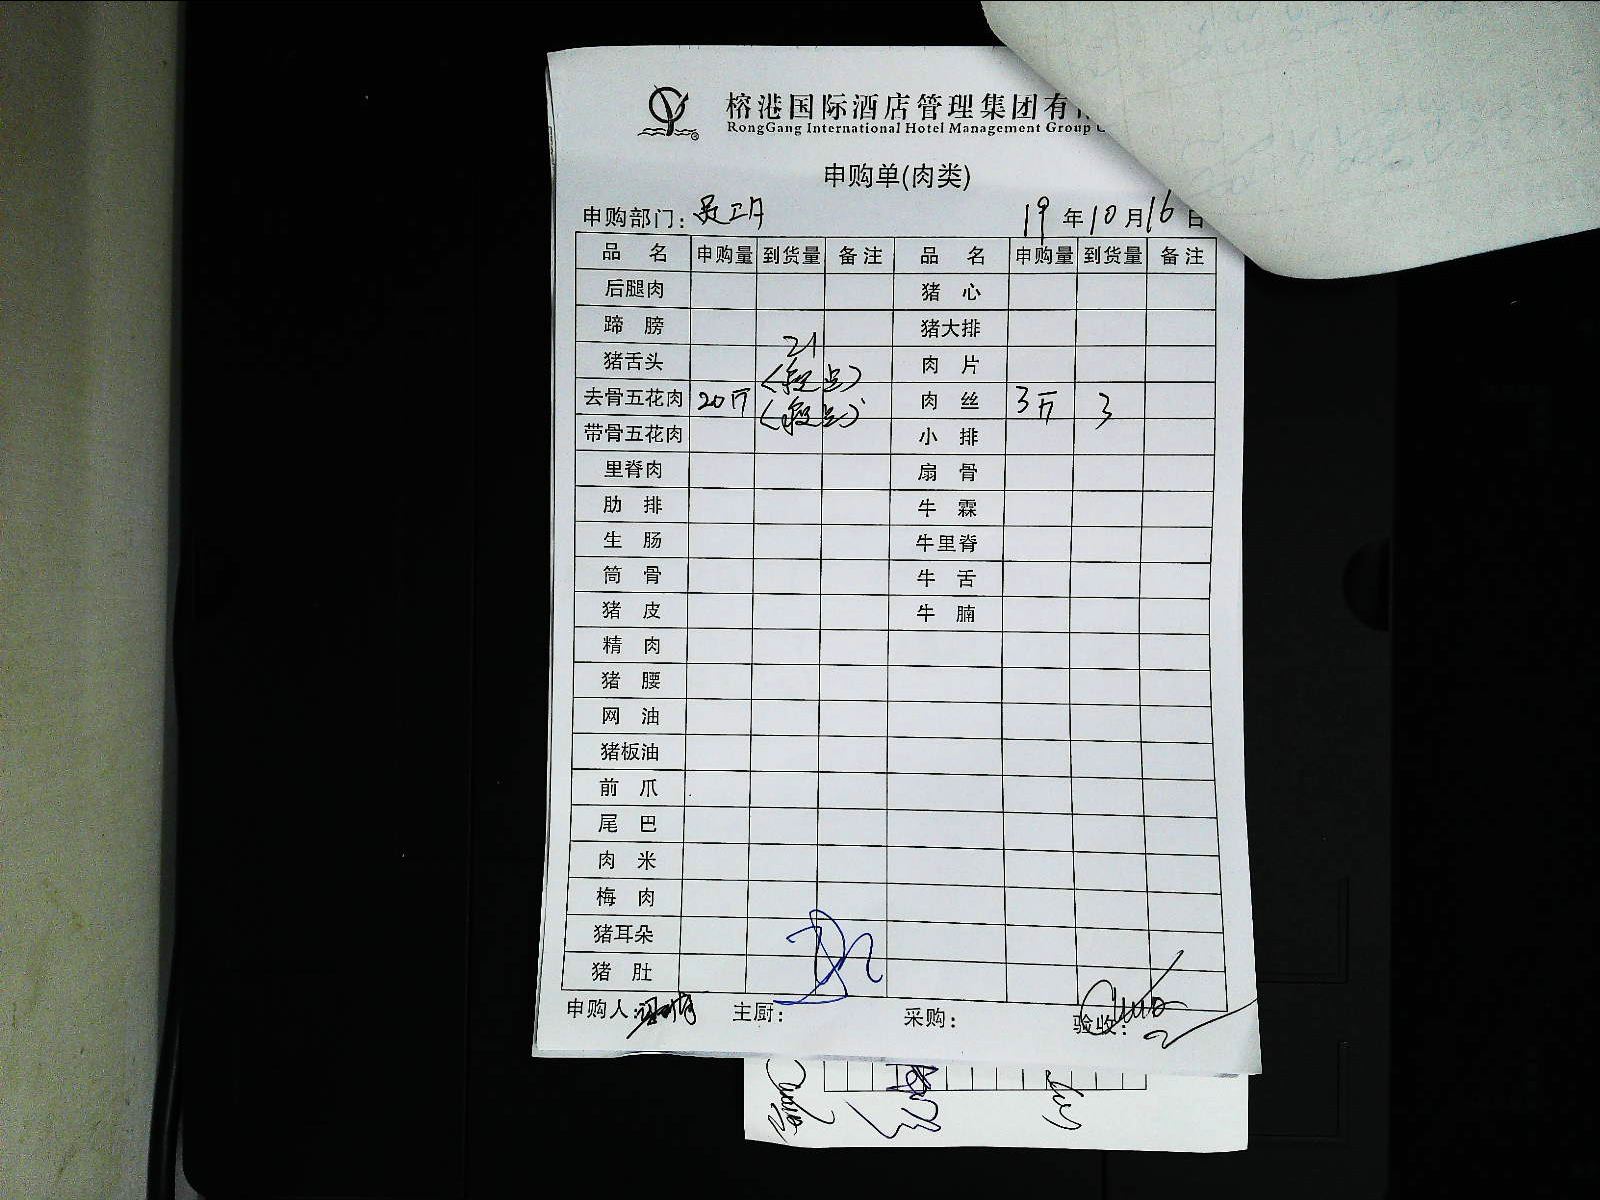 榕港国际酒店管理集团有
RongGang International Hotel Management Group
申购单(肉类)
申购部门: 19年10月16日
品名 申购量 到货量 备注 品名 申购量 到货量 备注
后腿肉 猪心
蹄膀 猪大排
猪舌头 21 肉片
去骨五花肉 20斤 肉丝 3斤 3
带骨五花肉 小排
里脊肉 扇骨
肋排 牛霖
生肠 牛里脊
筒骨 牛舌
猪皮 牛腩
精肉
猪腰
网油
猪板油
前爪
尾巴
肉米
梅肉
猪耳朵
猪肚
申购人: 主厨: 采购: 验收: